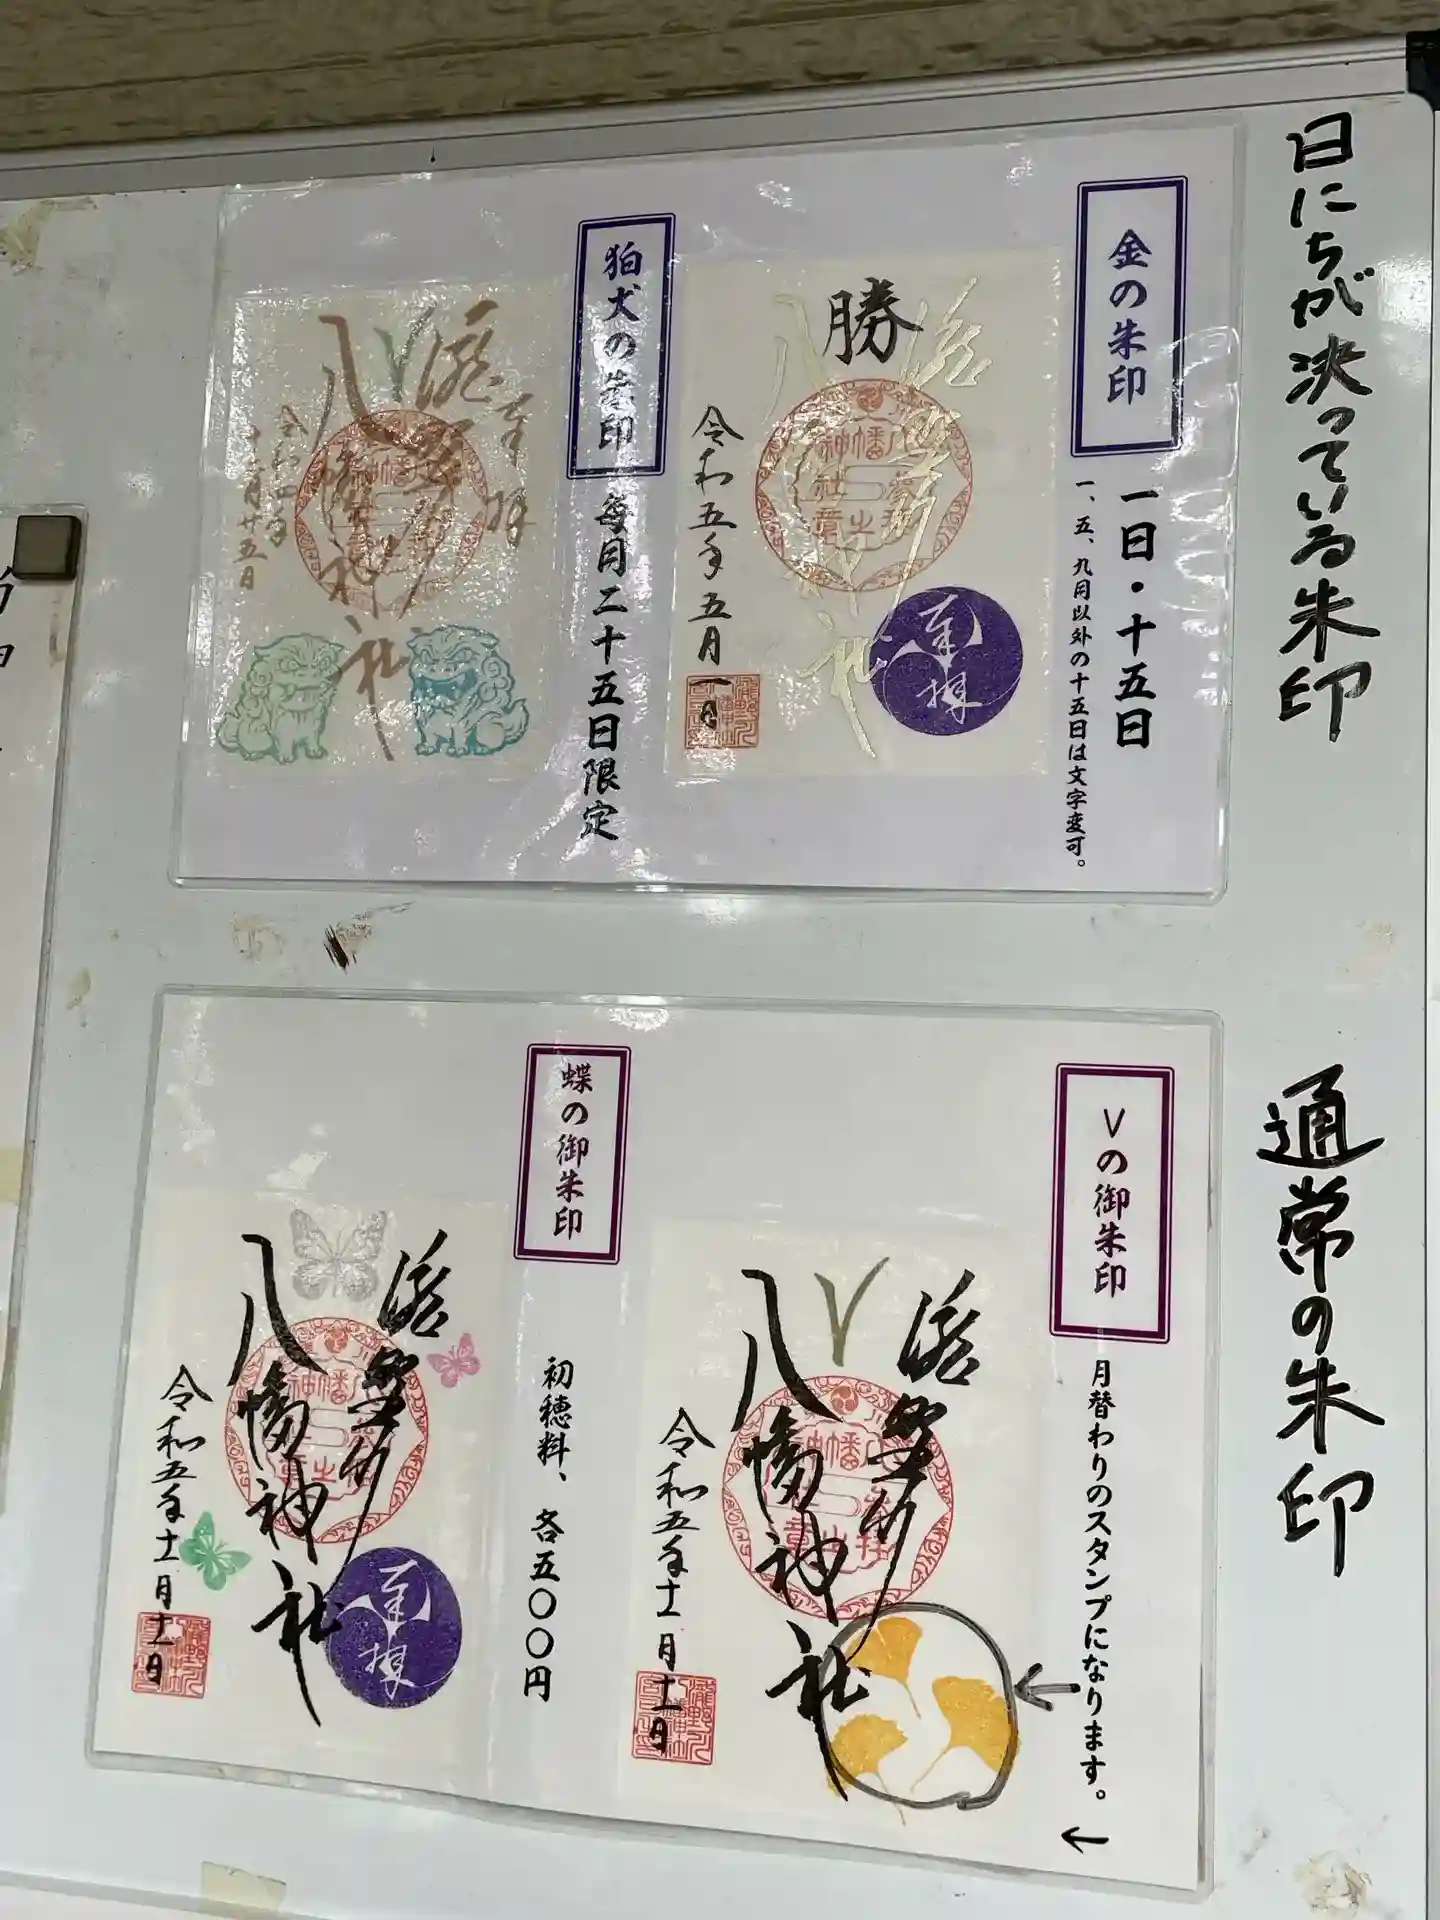 日にちが決っている朱印
金の朱印
一日・十五日
一、五、九月以外の十五日は文字変可。
勝
奉拝
令和五年五月一日
狛犬の朱印
毎月二十五日限定
奉拝
八幡神社
通常の朱印
Vの御朱印
月替わりのスタンプになります。
←
V
八幡神社
令和五年十一月十一日
蝶の御朱印
初穂料、各五〇〇円
八幡神社
奉拝
令和五年十一月十一日